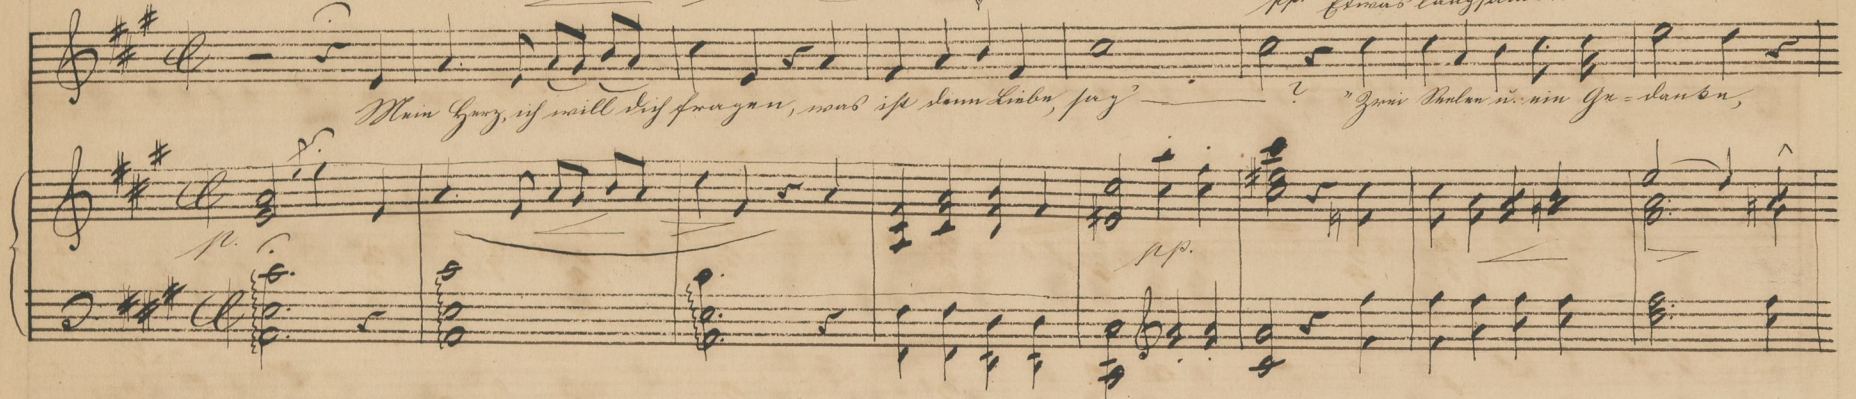 pp. Etwas langsam
Mein Herz, ich will dich fragen, was ist denn Liebe, sag' ? "Zwei Seelen u. ein Ge-danke,
p.
pp.